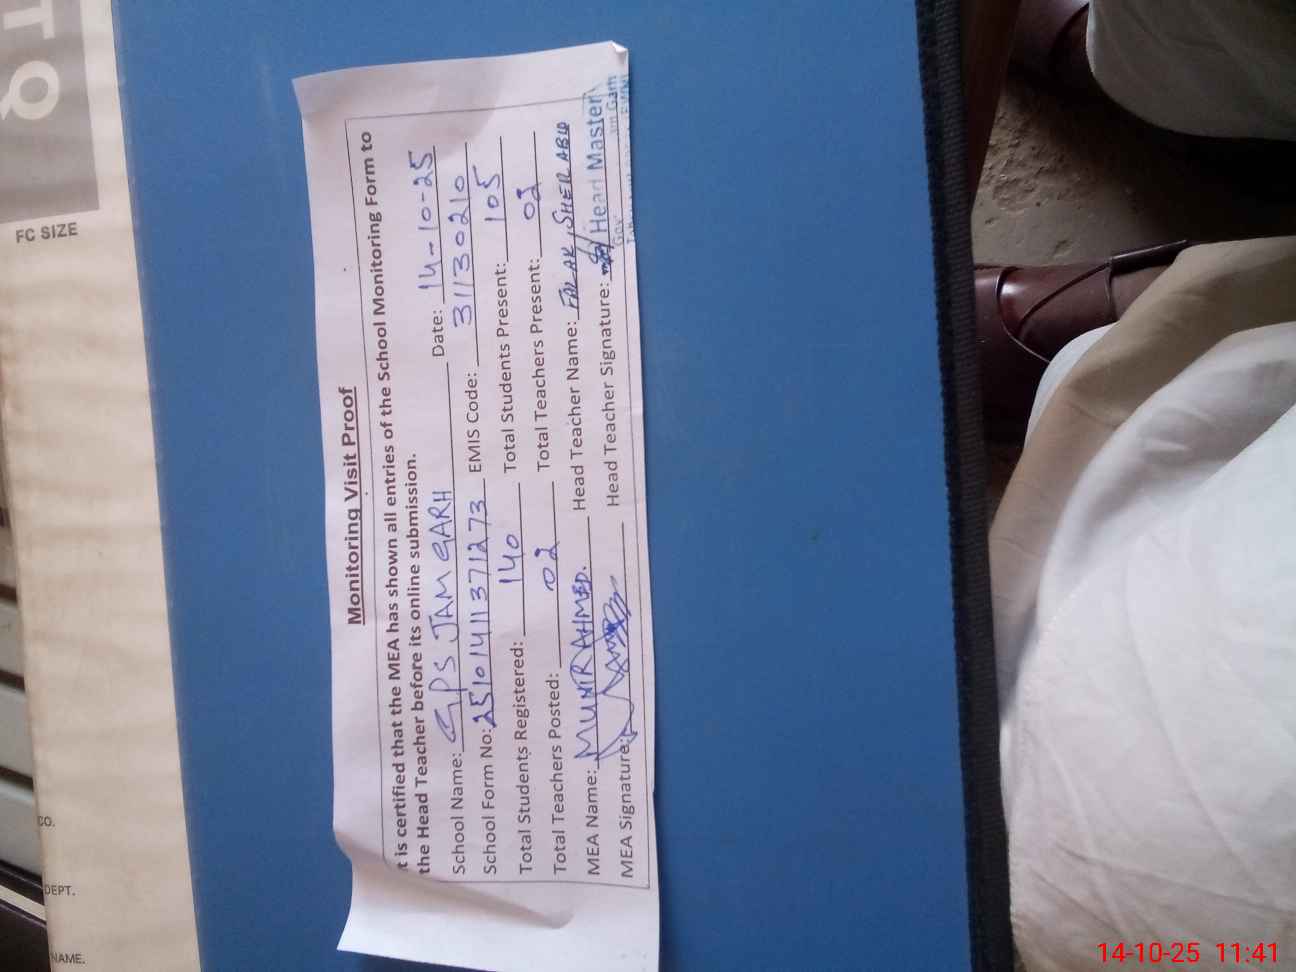 Monitoring Visit Proof
t is certified that the MEA has shown all entries of the School Monitoring Form to
the Head Teacher before its online submission.
School Name: GPS JAM GARH Date: 14-10-25
School Form No: 25101411371273 EMIS Code: 31130210
Total Students Registered: 140 Total Students Present: 105
Total Teachers Posted: 02 Total Teachers Present: 02
MEA Name: MUNIR AHMED. Head Teacher Name: FALAK SHER ABID
MEA Signature: Head Teacher Signature: Head Master
Gov Jam Garh
TQ
FC SIZE
CO.
DEPT.
NAME.
14-10-25 11:41